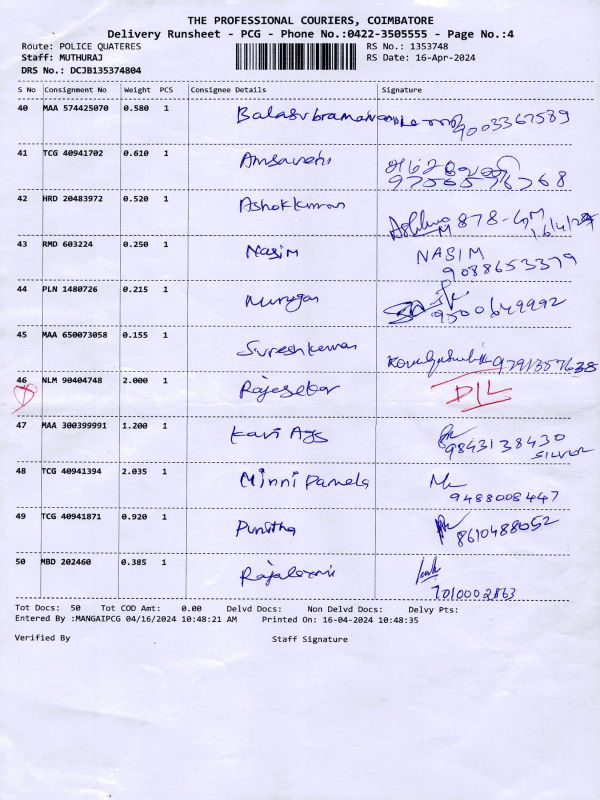 THE PROFESSIONAL COURIERS, COIMBATORE
Delivery Runsheet - PCG - Phone No.:0422-3505555 - Page No.:4
Route: POLICE QUATERES RS No.: 1353748
Staff: MUTHURAJ RS Date: 16-Apr-2024
DRS No.: DCJB135374804
S No Consignment No Weight PCS Consignee Details Signature
40 MAA 574425070 0.580 1 Balasubramaniam 9003367589
41 TCG 40941702 0.610 1
9756576768
42 HRD 20483972 0.520 1 Ashokkumar 16/4/24
43 RMD 603224 0.250 1 Nasim NASIM
9088653379
44 PLN 1480726 0.215 1 Murugan 9500649992
45 MAA 650073058 0.155 1 Sureshkumar
46 NLM 90404748 2.000 1 Rajesekar D/L
47 MAA 300399991 1.200 1 Kavi Ags 9843138430
SILVER
48 TCG 40941394 2.035 1 Minni Pamela
9488008447
49 TCG 40941871 0.920 1 Punitha 8610488052
50 MBD 202460 0.385 1 Rajalaxmi
7010002863
Tot Docs: 50 Tot COD Amt: 0.00 Delvd Docs: Non Delvd Docs: Delvy Pts:
Entered By :MANGAIPCG 04/16/2024 10:48:21 AM Printed On: 16-04-2024 10:48:35
Verified By Staff Signature